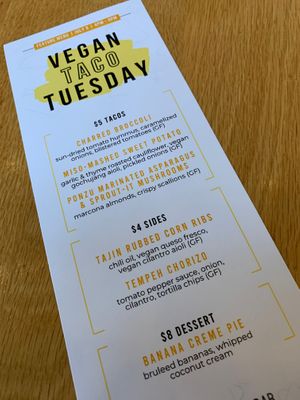 FEATURE MENU | JULY 5 | 4PM - 9PM
VEGAN
TACO
TUESDAY
$5 TACOS
CHARRED BROCCOLI
sun-dried tomato hummus, caramelized
onions, blistered tomatoes (GF)
MISO-MASHED SWEET POTATO
garlic & thyme roasted cauliflower, vegan
gochujang aioli, pickled onions (GF)
PONZU MARINATED ASPARAGUS
& SPROUT-IT MUSHROOMS
marcona almonds, crispy scallions (GF)
$4 SIDES
TAJIN RUBBED CORN RIBS
chili oil, vegan queso fresco,
vegan cilantro aioli (GF)
TEMPEH CHORIZO
tomato pepper sauce, onion,
cilantro, tortilla chips (GF)
$8 DESSERT
BANANA CREME PIE
bruleed bananas, whipped
coconut cream
BAR